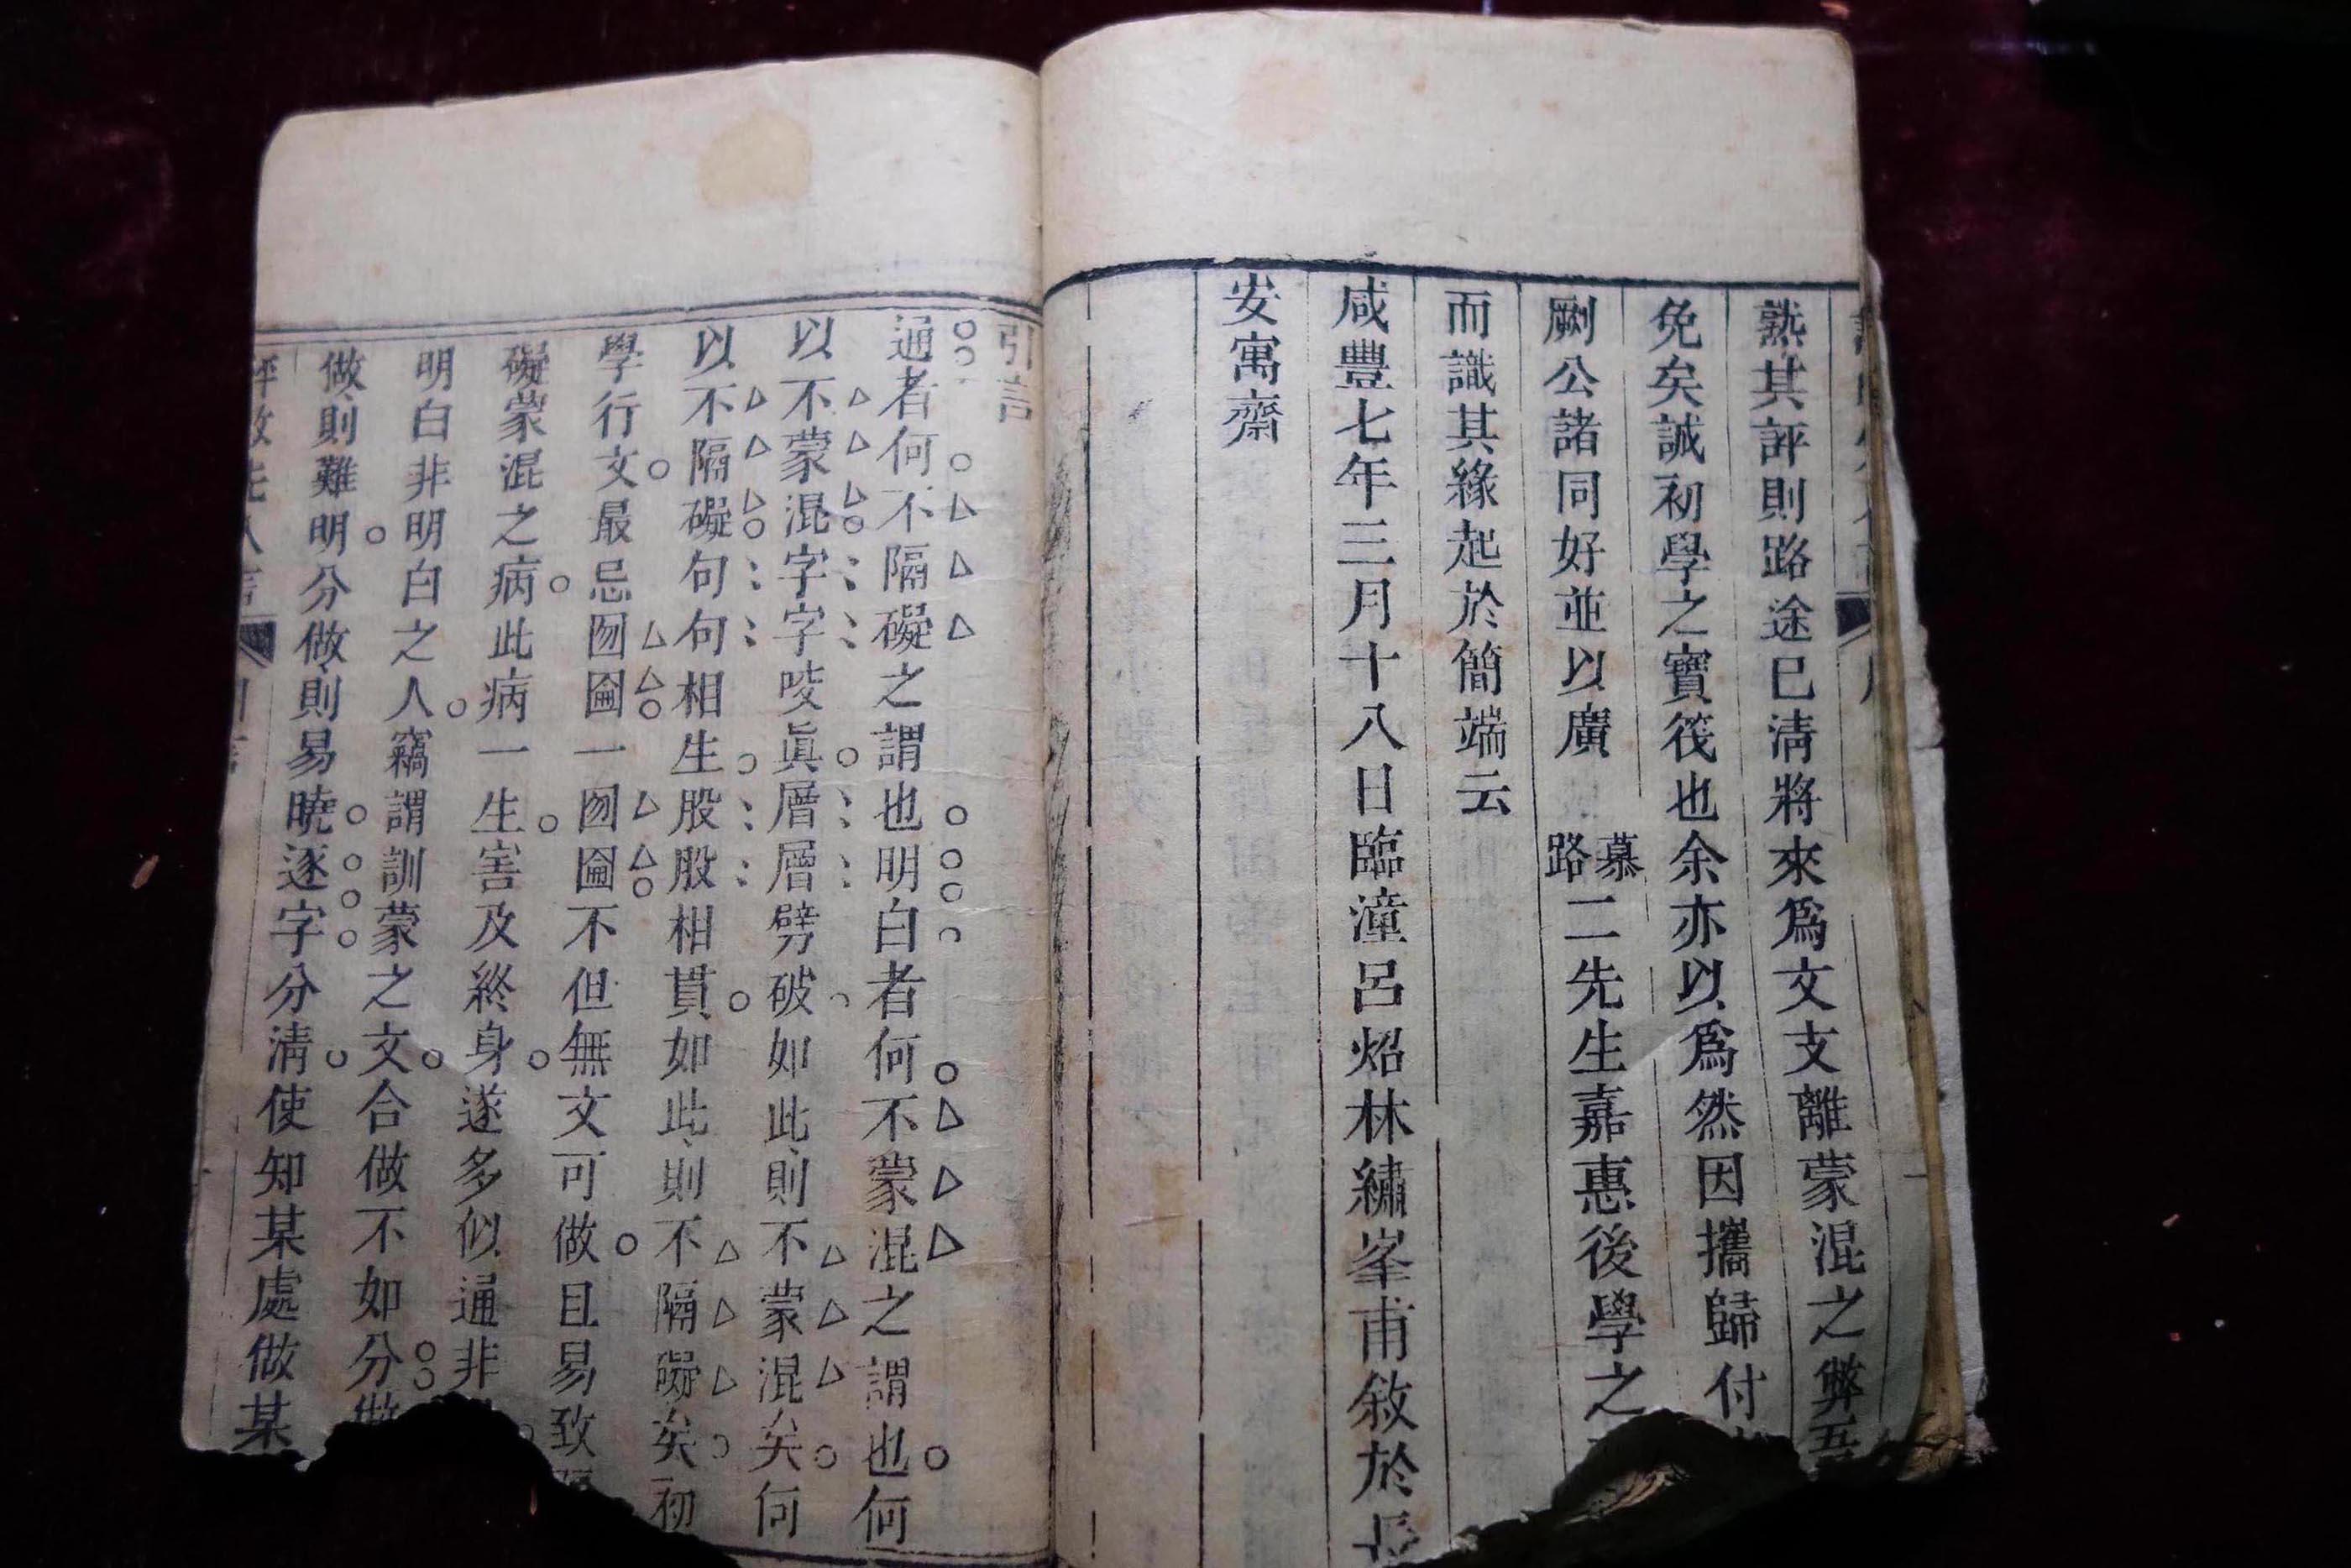 熟其評則路途已清將來爲文支離蒙混之弊吾
免矣誠初學之寶筏也余亦以爲然因攜歸付
劂公諸同好並以廣慕路二先生嘉惠後學之
而識其緣起於簡端云
咸豐七年三月十八日臨潼呂炤林繡峯甫敘於長
安寓齋
引言
通者何不隔礙之謂也明白者何不蒙混之謂也何
以不蒙混字字咬眞層層劈破如此則不蒙混矣何
以不隔礙句句相生股股相貫如此則不隔礙矣初
學行文最忌囫圇一囫圇不但無文可做且易致隔
礙蒙混之病此病一生害及終身遂多似通非
明白非明白之人竊謂訓蒙之文合做不如分做
做則難明分做則易曉逐字分清使知某處做某